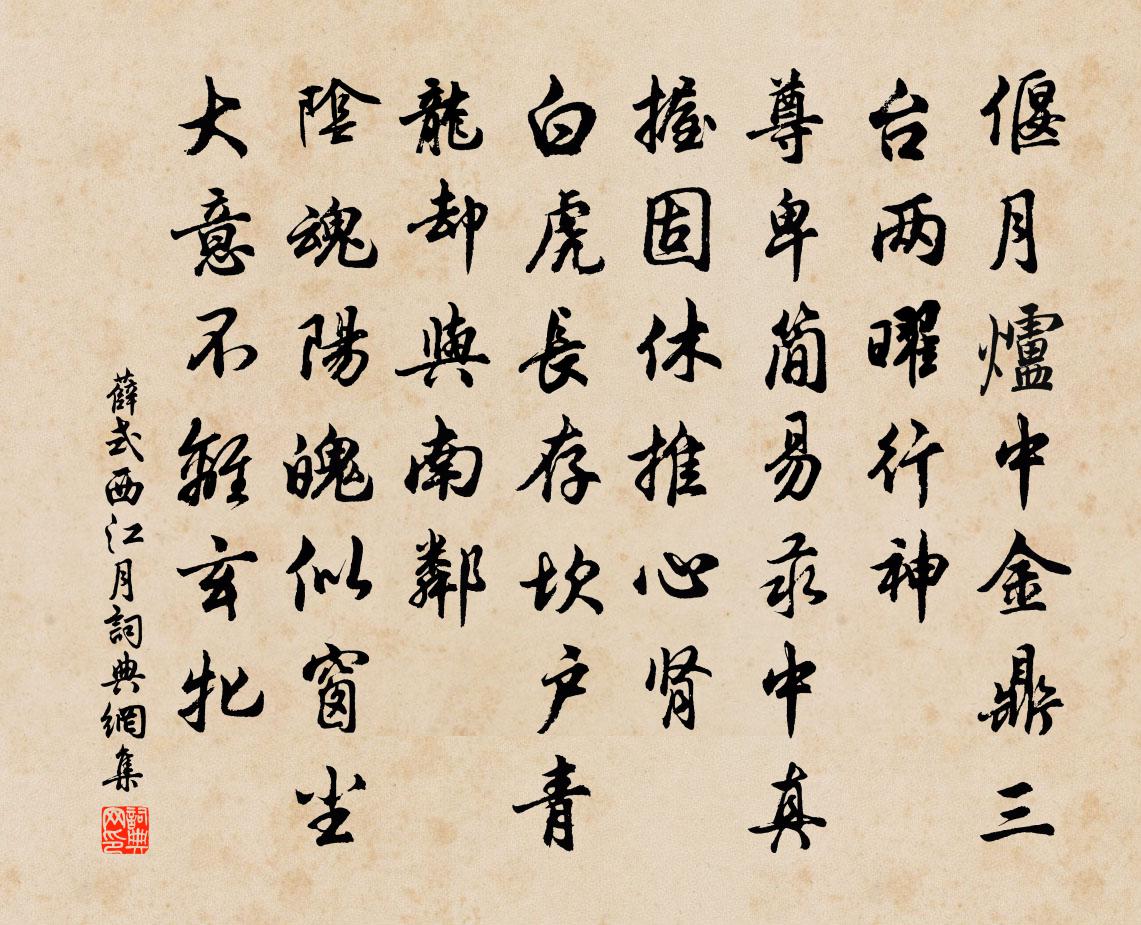 偃月爐中金鼎三
台两曜行神
尊卑简易汞中真
握固休推心肾
白虎長存坎户青
龍却與南鄰
陰魂陽魄似窗尘
大意不離玄牝
薛式西江月詞典網集
詞典网印